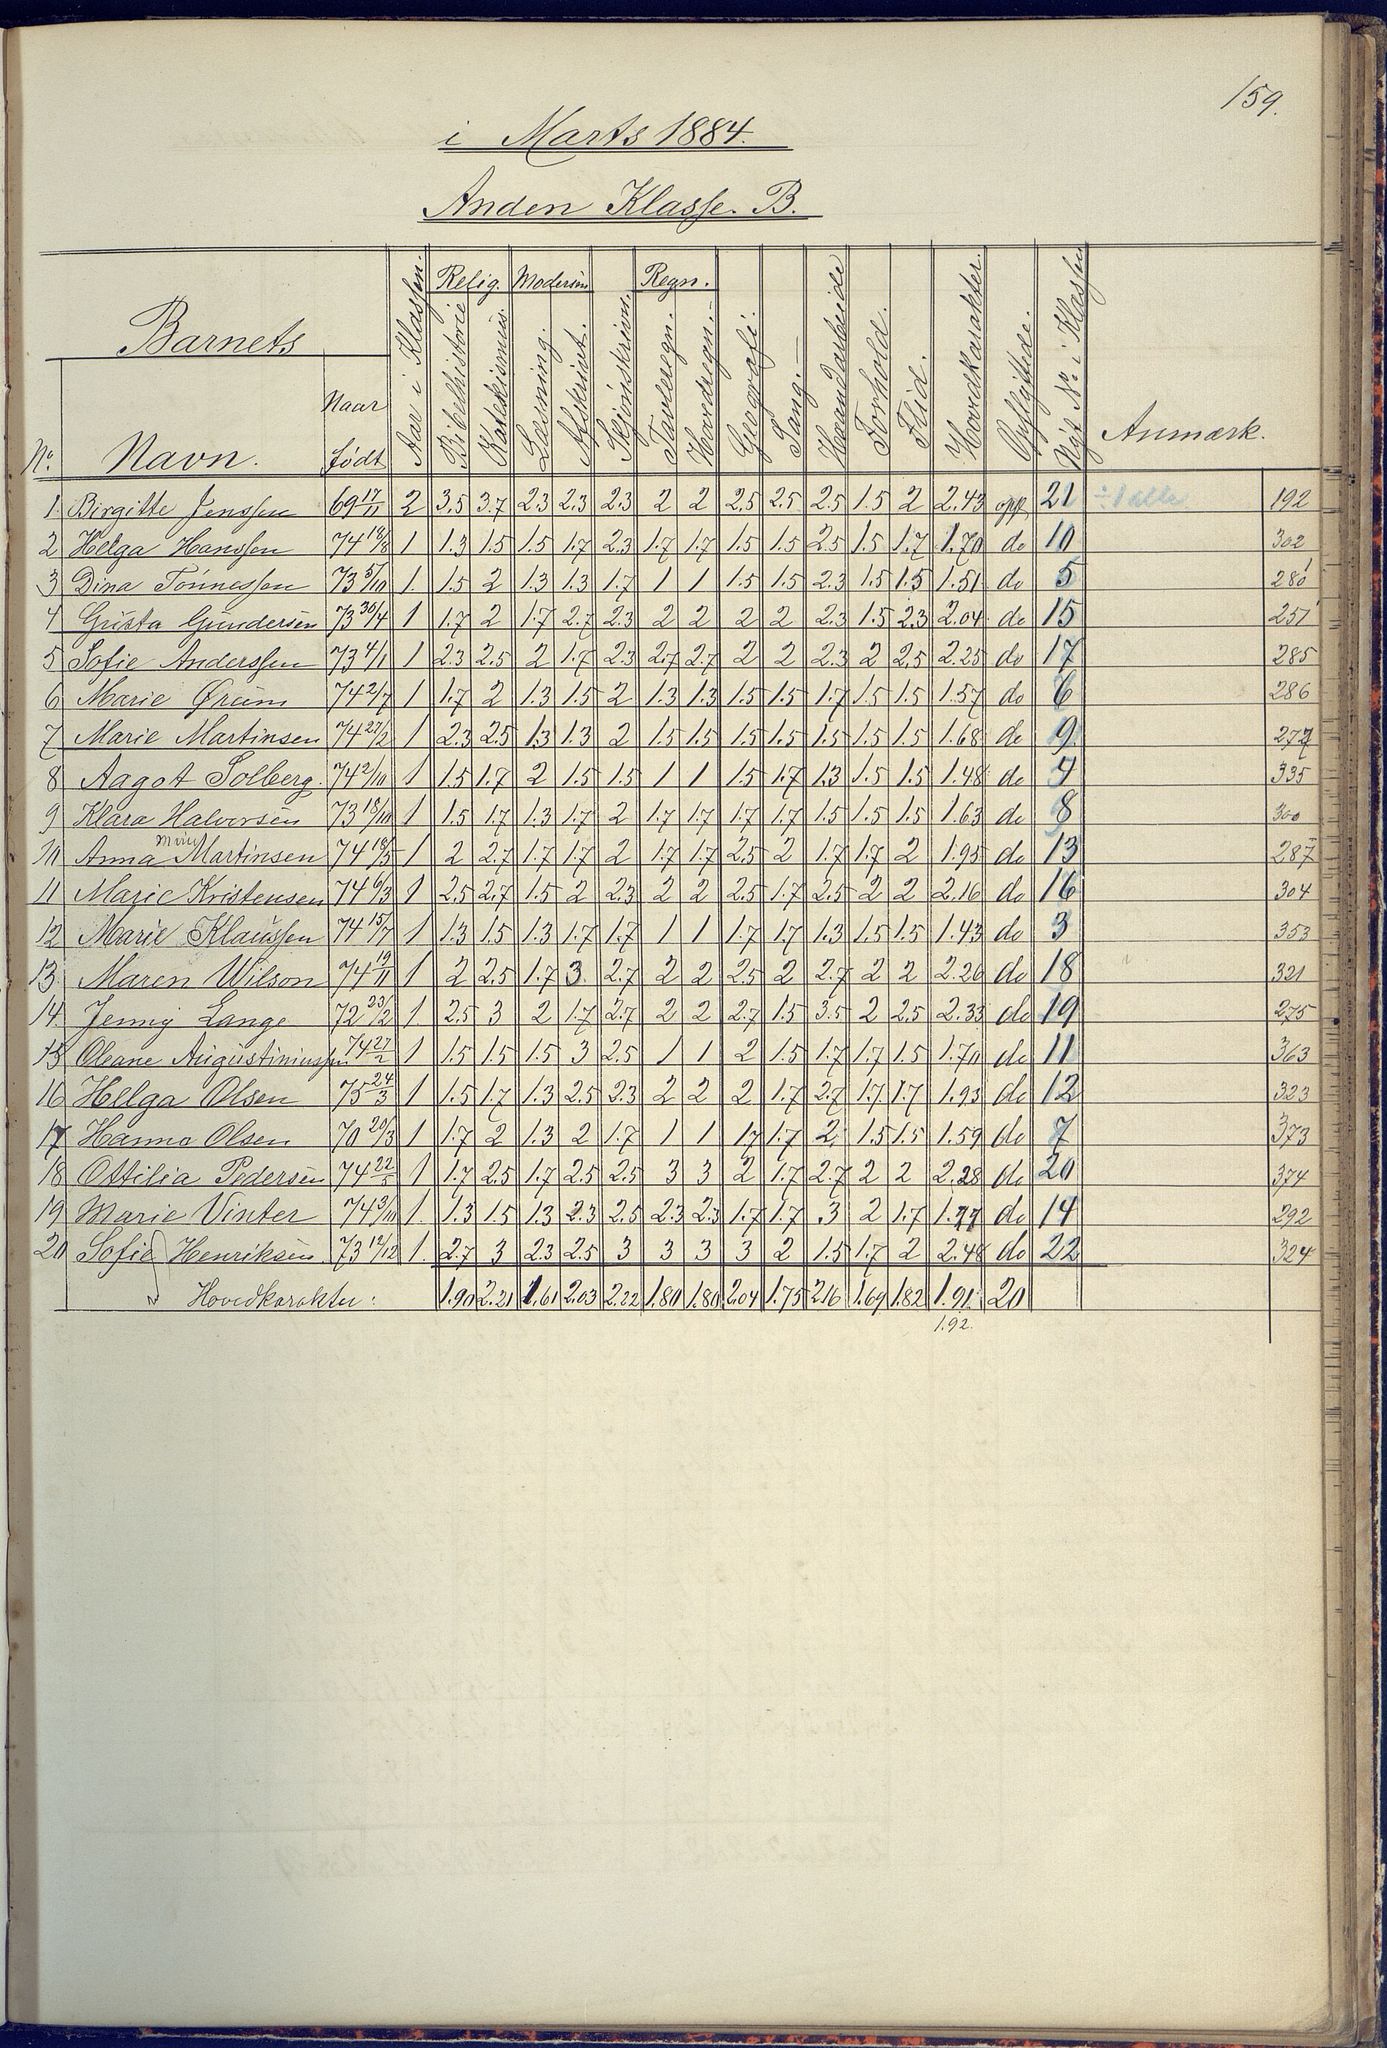 159.
i Marts 1884.
Anden Klasse. B.
Barnets
No. Navn. Naar født Aar i Klassen. Relig. Bibelhistorie Katekismus. Modersm Læsning. Afskrivt. Skjönskrivn. Regn. Tavleregn. Hovedregn. Geografi. Sang. Haandarbeide Forhold. Flid. Hovedkarakter. Opflyttede. Nyt No. i Klassen Anmærk.
1. Birgitte Jenssen 69 17/11 2 3.5 3.7 2.3 2.3 2.3 2 2 2.5 2.5 2.5 1.5 2 2.43 opf. 21 192
2 Helga Hanssen 74 18/8 1 1.3 1.5 1.5 1.7 2.3 1.7 1.7 1.5 1.5 2.5 1.5 1.7 1.70 do 10 302
3 Dina Tönnessen 73 5/10 1. 1.5 2 1.3 1.3 1.7 1 1 1.5 1.5 2.3 1.5 1.5 1.51 do 5 280
4 Gusta Gundersen 73 30/4 1 1.7 2 1.7 2.7 2.3 2 2 2 2 2.3 1.5 2.3 2.04 do 15 251
5 Sofie Anderssen 73 4/1 1 2.3 2.5 2 1.7 2.3 2.7 2.7 2 2 2.3 2 2.5 2.25 do 17 285
6 Marie Ørum 74 2/7 1 1.7 2 1.3 1.5 2 1.3 1.3 1.5 1.5 1.7 1.5 1.5 1.57 do 6 286
7 Marie Martinsen 74 27/2 1 2.3 2.5 1.3 1.3 2 1.5 1.5 1.5 1.5 1.5 1.5 1.5 1.68 do 9 277
8 Aagot Solberg. 74 2/10 1 1.5 1.7 2 1.5 1.5 1 1 1.5 1.7 1.3 1.5 1.5 1.48 do 4 335
9 Klara Halvorsen 73 18/10 1 1.5 1.7 1.3 1.7 2 1.7 1.7 1.7 1.7 1.5 1.5 1.5 1.63 do 8 300
10 Anna Marie Martinsen 74 18/5 1 2 2.7 1.7 1.7 2 1.7 1.7 2.5 2 1.7 1.7 2 1.95 do 13 287
11 Marie Kristensen 74 6/3 1 2.5 2.7 1.5 2 2.3 2 2 2.5 1.7 2.5 2 2 2.16 do 16 304
12 Marie Klaussen 74 15/7 1 1.3 1.5 1.3 1.7 1.7 1 1 1.7 1.7 1.3 1.5 1.5 1.43 do 3 353
13. Maren Wilson 74 19/11 1 2 2.5 1.7 3. 2.7 2 2 2.5 2 2.7 2 2 2.26 do 18 321
14. Jenny Lange 72 23/2 1. 2.5 3 2 1.7 2.7 2 2 2.7 1.5 3.5 2 2.5 2.33 do 19 275
15 Oleane Augustinussen 74 27/2 1 1.5 1.5 1.5 3 2.5 1 1 2 1.5 1.7 1.7 1.5 1.70 do 11 363
16 Helga Olsen 75 24/3 1 1.5 1.7 1.3 2.5 2.3 2 2 2 1.7 2.7 1.7 1.7 1.93 do 12 323
17 Hanna Olsen 70 20/3 1 1.7 2 1.3 2 1.7 1 1 1.7 1.7 2 1.5 1.5 1.59 do 7 373
18 Ottilia Pedersen 74 22/5 1 1.7 2.5 1.7 2.5 2.5 3 3 2 1.7 2.7 2 2 2.28 do 20 374
19 Marie Vinter 74 3/10 1. 1.3 1.5 1.3 2.3 2.5 2.3 2.3 1.7 1.7 3 2 1.7 1.97 do 14 292
20 Sofie Henriksen 73 12/12 1. 2.7 3 2.3 2.5 3 3 3 3 2 1.5 1.7 2 2.48 do 22 324
Hovedkarakter: 1.90 2.21 1.61 2.03 2.22 1.80 1.80 2.04 1.75 2.16 1.69 1.82 1.91 20
1.92.